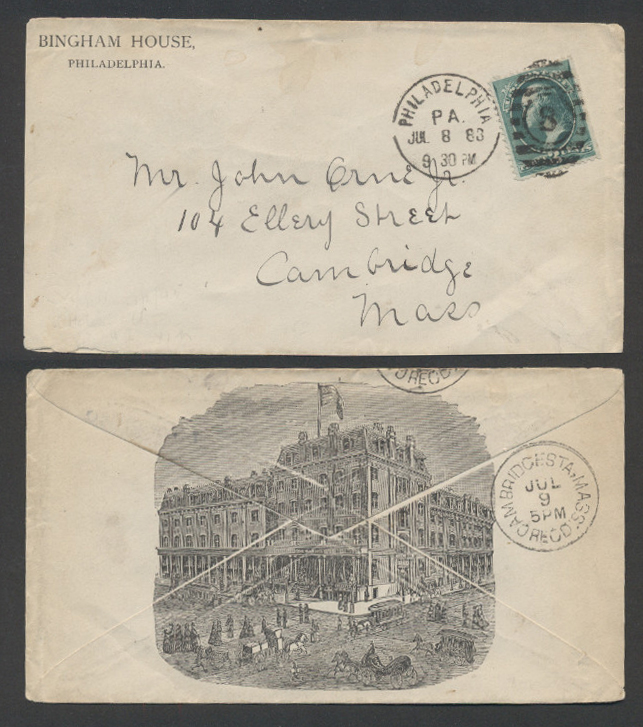 BINGHAM HOUSE,
PHILADELPHIA.
PHILADELPHIA
PA.
JUL 8 83
9 30 PM
Mr. John Orne Jr.
104 Ellery Street
Cambridge
Mass
RECD
CAMBRIDGE STA. MASS.
JUL
9
5PM
RECD